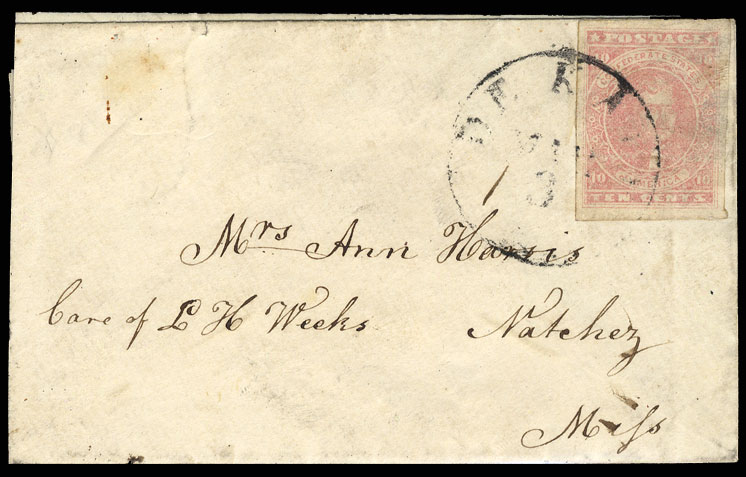 POSTAGE
CONFEDERATE STATES
10 10
OF AMERICA
10 10
TEN CENTS
3
Mrs Ann Harris
Care of L H Weeks Natchez
Miss